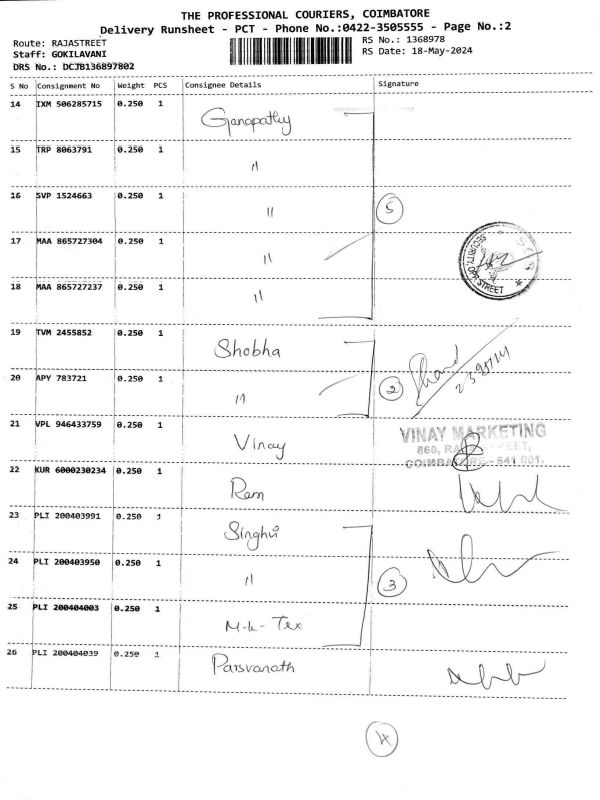 THE PROFESSIONAL COURIERS, COIMBATORE
Delivery Runsheet - PCT - Phone No.:0422-3505555 - Page No.:2
Route: RAJASTREET
Staff: GOKILAVANI
DRS No.: DCJB136897802
RS No.: 1368978
RS Date: 18-May-2024
S No Consignment No Weight PCS Consignee Details Signature
14 IXM 506285715 0.250 1 Ganapathy
15 TRP 8063791 0.250 1 "
16 SVP 1524663 0.250 1 " 5
17 MAA 865727304 0.250 1 "
18 MAA 865727237 0.250 1 "
SECURITY, OPP STREET
19 TVM 2455852 0.250 1 Shobha
20 APY 783721 0.250 1 " 2
21 VPL 946433759 0.250 1 Vinay
VINAY MARKETING
860,
COIMBATORE - 641 001.
22 KUR 6000230234 0.250 1 Ram
23 PLI 200403991 0.250 1 Singhvi
24 PLI 200403950 0.250 1 " 3
25 PLI 200404003 0.250 1 M-k- Tex
26 PLI 200404039 0.250 1 Parsvanath
4